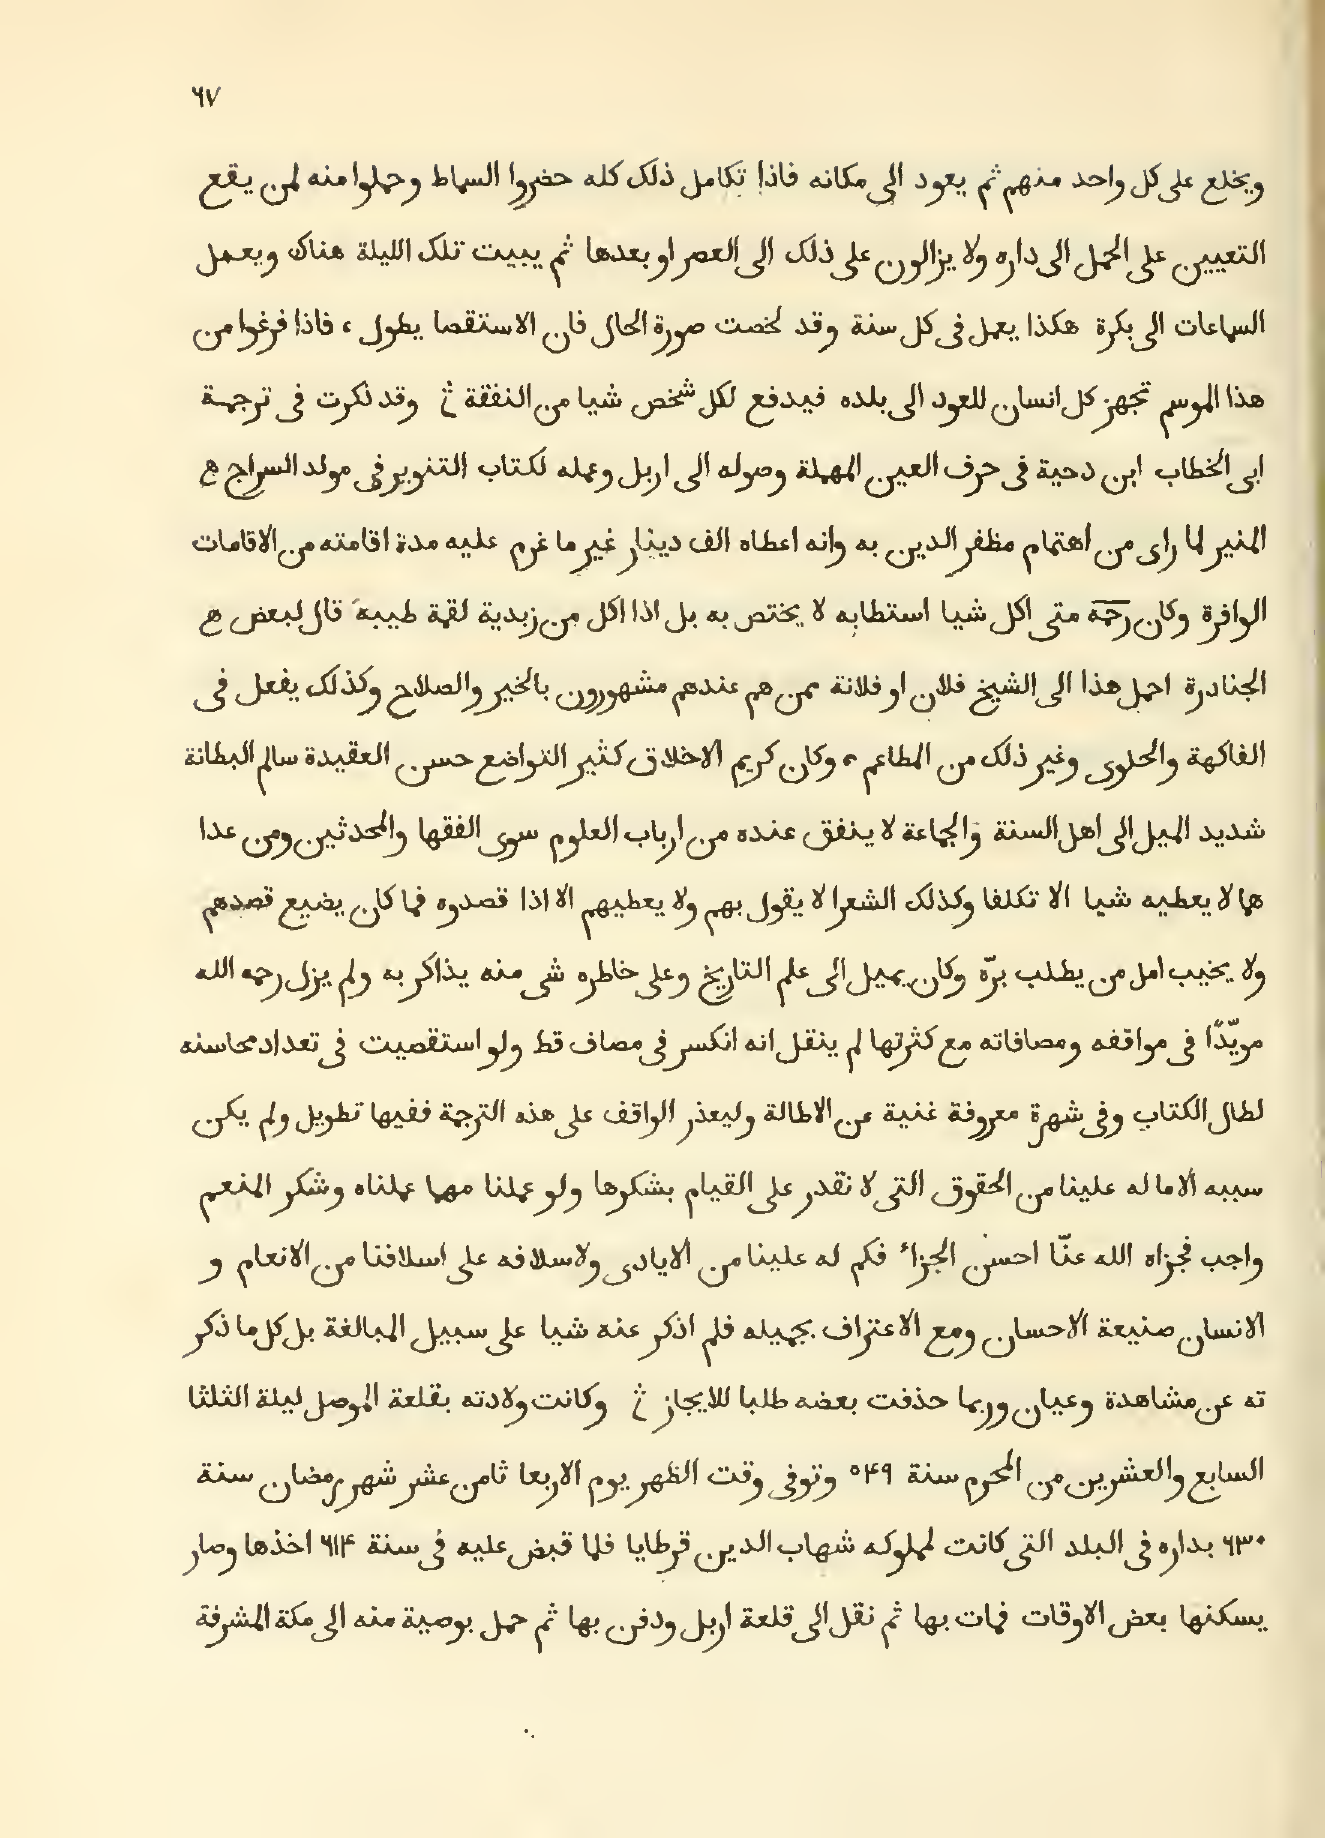 ٦٧
ويخلع على كل واحد منهم ثم يعود الى مكانه فاذا تكامل ذلك كله حضروا السماط وحملوا منه لمن يقع
التعيين على الحمل الى داره ولا يزالون على ذلك الى العصر او بعدها ثم يبيت تلك الليلة هناك ويعمل
السماعات الى بكرة هكذا يعمل فى كل سنة وقد لخصت صورة الحال فان الاستقصا يطول ، فاذا فرغوا من
هذا الموسم تجهز كل انسان للعود الى بلده فيدفع لكل شخص شيا من النفقة وقد ذكرت فى ترجمة
ابى الخطاب ابن دحية فى حرف العين المهملة وصوله الى اربل وعمله لكتاب التنوير فى مولد السراج
المنير لما راى من اهتمام مظفر الدين به وانه اعطاه الف دينار غير ما غرم عليه مدة اقامته من الاقامات
الوافرة وكان رحمه متى اكل شيا استطابه لا يختص به بل اذا اكل من زبدية لقمة طيبة قال لبعض
الجنادرة احمل هذا الى الشيخ فلان او فلانة ممن هم عندهم مشهورون بالخير والصلاح وكذلك يفعل فى
الفاكهة والحلوى وغير ذلك من المطاعم ، وكان كريم الاخلاق كثير التواضع حسن العقيدة سالم البطانة
شديد الميل الى اهل السنة والجماعة لا ينفق عنده من ارباب العلوم سوى الفقها والمحدثين ومن عدا
هما لا يعطيه شيا الا تكلفا وكذلك الشعرا لا يقول بهم ولا يعطيهم الا اذا قصدوه فما كان يضيع قصدهم
ولا يخيب امل من يطلب برّه وكان يميل الى علم التاريخ وعلى خاطره شى منه يذاكر به ولم يزل رحمه الله
مويّدًا فى مواقفه ومصافاته مع كثرتها لم ينقل انه انكسر فى مصاف قط ولو استقصيت فى تعداد محاسنه
لطال الكتاب وفى شهرة معروفة غنية عن الاطالة وليعذر الواقف على هذه الترجمة ففيها تطويل ولم يكن
سببه الا ما له علينا من الحقوق التى لا نقدر على القيام بشكرها ولو عملنا مهما عملناه وشكر المنعم
واجب فجزاه الله عنّا احسن الجزاء فكم له علينا من الايادى ولاسلافه على اسلافنا من الانعام و
الانسان صنيعة الاحسان ومع الاعتراف بجميله فلم اذكر عنه شيا على سبيل المبالغة بل كل ما ذكر
ته عن مشاهدة وعيان وربما حذفت بعضه طلبا للايجاز وكانت ولادته بقلعة الموصل ليلة الثلثا
السابع والعشرين من المحرم سنة ٥٤٩ وتوفى وقت الظهر يوم الاربعا ثامن عشر شهر رمضان سنة
٦٣٠ بداره فى البلد التى كانت لمملوكه شهاب الدين قرطايا فلما قبض عليه فى سنة ٦١٤ اخذها وصار
يسكنها بعض الاوقات فمات بها ثم نقل الى قلعة اربل ودفن بها ثم حمل بوصية منه الى مكة المشرفة